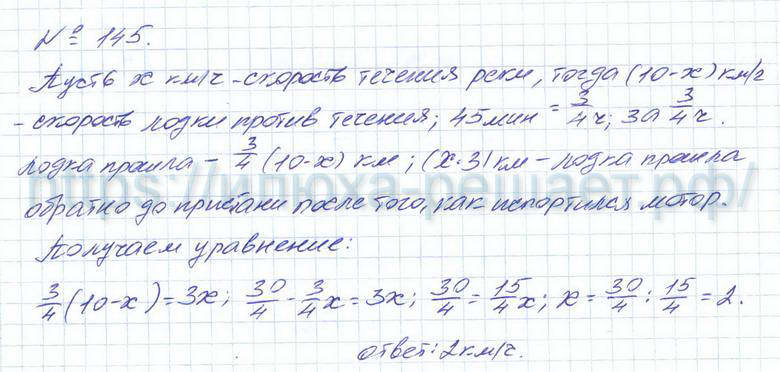 № 145.
Пусть x км/ч - скорость течения реки, тогда (10-x) км/ч
- скорость лодки против течения; 45 мин = 3/4 ч; за 3/4 ч.
лодка прошла - 3/4 (10-x) км; (x·3) км - лодка прошла
https://клюха-решает.рф/
обратно до пристани после того, как испортился мотор.
Получаем уравнение:
3/4 (10-x) = 3x; 30/4 - 3/4 x = 3x; 30/4 = 15/4 x; x = 30/4 : 15/4 = 2.
ответ: 2 км/ч.